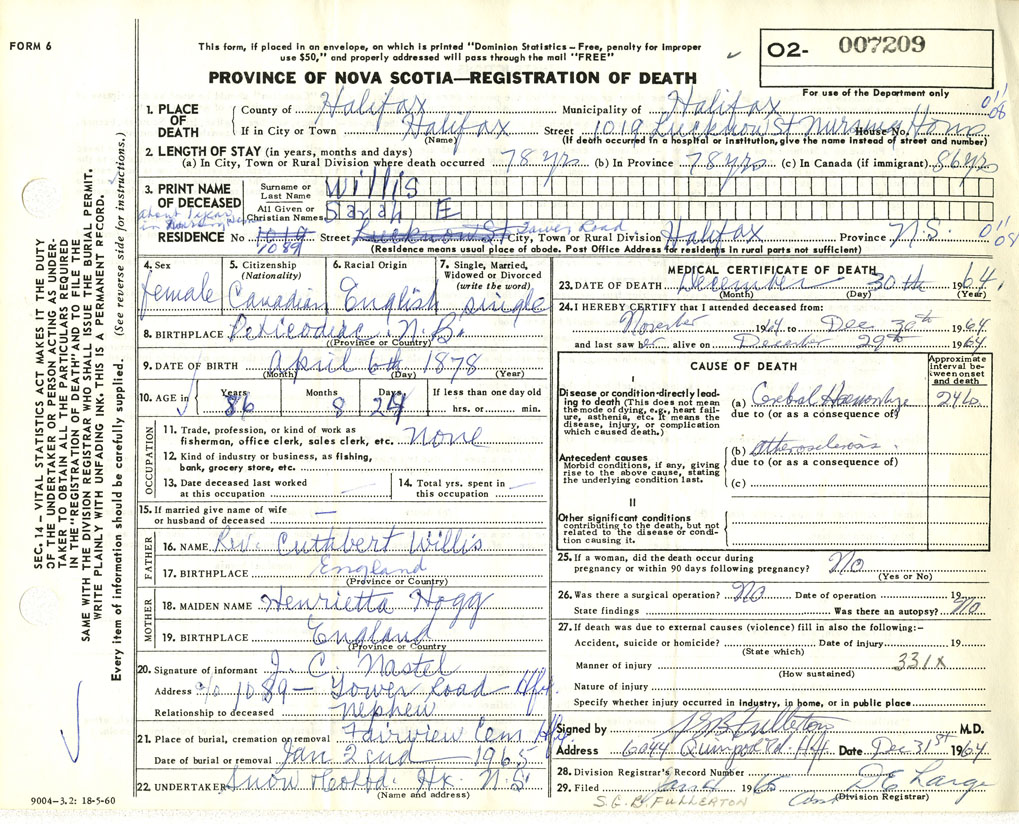 FORM 6
This form, if placed in an envelope, on which is printed "Dominion Statistics – Free, penalty for improper
use $50," and properly addressed will pass through the mail "FREE"
O2- 007209
For use of the Department only
PROVINCE OF NOVA SCOTIA—REGISTRATION OF DEATH
1. PLACE OF DEATH
County of Halifax Municipality of Halifax
If in City or Town Halifax Street 1019 Lucknow St Nursing House No. Home
(Name) (If death occurred in a hospital or institution, give the name instead of street and number)
2. LENGTH OF STAY (in years, months and days)
(a) In City, Town or Rural Division where death occurred 78 yrs (b) In Province 78 yrs (c) In Canada (if immigrant) 86 yrs
3. PRINT NAME OF DECEASED
Surname or Last Name Willis
All Given or Christian Names Sarah E
about 1 year in Nursing Home
RESIDENCE No 1019 1089 Street Lucknow St Tower Road City, Town or Rural Division Halifax Province N.S.
(Residence means usual place of abode. Post Office Address for residents in rural parts not sufficient)
4. Sex female
5. Citizenship (Nationality) Canadian
6. Racial Origin English
7. Single, Married, Widowed or Divorced (write the word) single
8. BIRTHPLACE Peticodiac N.B.
(Province or Country)
9. DATE OF BIRTH April 6th 1878
(Month) (Day) (Year)
10. AGE in Years 86 Months 8 Days 24 If less than one day old hrs. or min.
OCCUPATION
11. Trade, profession, or kind of work as fisherman, office clerk, sales clerk, etc. none
12. Kind of industry or business, as fishing, bank, grocery store, etc.
13. Date deceased last worked at this occupation —
14. Total yrs. spent in this occupation —
15. If married give name of wife or husband of deceased —
FATHER
16. NAME Rev. Cuthbert Willis
17. BIRTHPLACE England
(Province or Country)
MOTHER
18. MAIDEN NAME Henrietta Hogg
19. BIRTHPLACE England
(Province or Country
20. Signature of informant J. C. Nastel
Address c/o 1089 – Tower Road Hfx.
Relationship to deceased nephew
21. Place of burial, cremation or removal Fairview Cem Hfx
Date of burial or removal Jan 2cnd 1965
22. UNDERTAKER Snow Hx. N.S.
(Name and address)
9004–3.2: 18-5-60
MEDICAL CERTIFICATE OF DEATH
23. DATE OF DEATH December 30th 1964.
(Month) (Day) (Year)
24. I HEREBY CERTIFY that I attended deceased from:
November 1964 to Dec 30th 1964
and last saw her alive on December 29th 1964.
CAUSE OF DEATH
Approximate interval between onset and death
I
Disease or condition directly leading to death (This does not mean the mode of dying, e.g., heart failure, asthenia, etc. It means the disease, injury, or complication which caused death.)
(a) Cerebral Haemorrhage
due to (or as a consequence of)
Antecedent causes
Morbid conditions, if any, giving rise to the above cause, stating the underlying condition last.
(b) atherosclerosis
due to (or as a consequence of)
(c)
II
Other significant conditions
contributing to the death, but not related to the disease or condition causing it.
25. If a woman, did the death occur during pregnancy or within 90 days following pregnancy? No
(Yes or No)
26. Was there a surgical operation? No Date of operation 19
State findings Was there an autopsy? No
27. If death was due to external causes (violence) fill in also the following:–
Accident, suicide or homicide? Date of injury 19
(State which)
Manner of injury 331X
(How sustained)
Nature of injury
Specify whether injury occurred in industry, in home, or in public place
Signed by S E B Fullerton M.D.
Address 6044 Quinpool Rd. Hfx Date Dec 31st 1964
28. Division Registrar's Record Number
29. Filed Jan 4 1965 D E Large
(Division Registrar)
S.E.B. FULLERTON
SEC. 14 – VITAL STATISTICS ACT MAKES IT THE DUTY
OF THE UNDERTAKER OR PERSON ACTING AS UNDER-
TAKER TO OBTAIN ALL THE PARTICULARS REQUIRED
IN THE "REGISTRATION OF DEATH" AND TO FILE THE
SAME WITH THE DIVISION REGISTRAR WHO SHALL ISSUE THE BURIAL PERMIT.
WRITE PLAINLY WITH UNFADING INK. THIS IS A PERMANENT RECORD.
Every item of information should be carefully supplied. (See reverse side for instructions.)